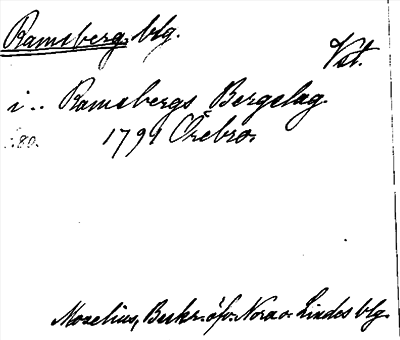 Ramsberg, blg.
Vst.
i .. Ramsbergs Bergslag.
1791 Örebro.
Mozelius, Beskr. öfv. Nora o. Lindes blg.